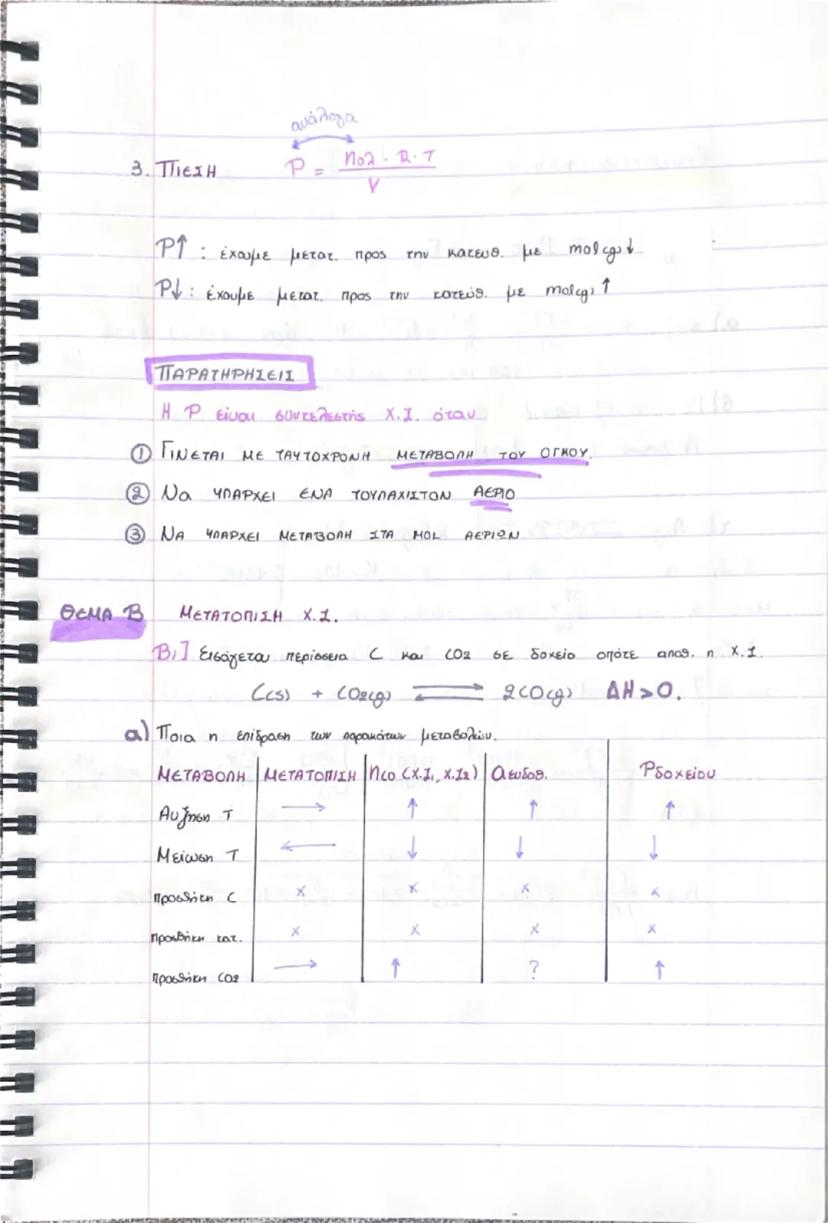 ανάλογα
3. ΠΙΕΣΗ P = nολ · R · T / V
P↑ : έχουμε μετατ. προς την κατευθ. με mol(g)↓
P↓ : έχουμε μετατ. προς την κατευθ. με mol(g)↑
ΠΑΡΑΤΗΡΗΣΕΙΣ
Η P είναι συντελεστής Χ.Ι. όταν
① ΓΙΝΕΤΑΙ ΜΕ ΤΑΥΤΟΧΡΟΝΗ ΜΕΤΑΒΟΛΗ ΤΟΥ ΟΓΚΟΥ.
② Να ΥΠΑΡΧΕΙ ΕΝΑ ΤΟΥΛΑΧΙΣΤΟΝ ΑΕΡΙΟ
③ ΝΑ ΥΠΑΡΧΕΙ ΜΕΤΑΒΟΛΗ ΣΤΑ MOL ΑΕΡΙΩΝ
ΘΕΜΑ Β ΜΕΤΑΤΟΠΙΣΗ Χ.Ι.
Β1] Εισάγεται περίσσεια C και CO2 σε δοχείο οπότε αποθ. η Χ.Ι.
C(s) + CO2(g) ⇌ 2CO(g) ΔΗ>0.
α) Ποια η επίδραση των παρακάτων μεταβολών.
ΜΕΤΑΒΟΛΗ ΜΕΤΑΤΟΠΙΣΗ nco (Χ.Ι1, Χ.Ι2) αενδοθ. Pδοχείου
Αυξηση Τ → ↑ ↑ ↑
Μείωση Τ ← ↓ ↓ ↓
προσθήκη C x x x x
προσθήκη κατ. x x x x
προσθήκη CO2 → ↑ ? ↑